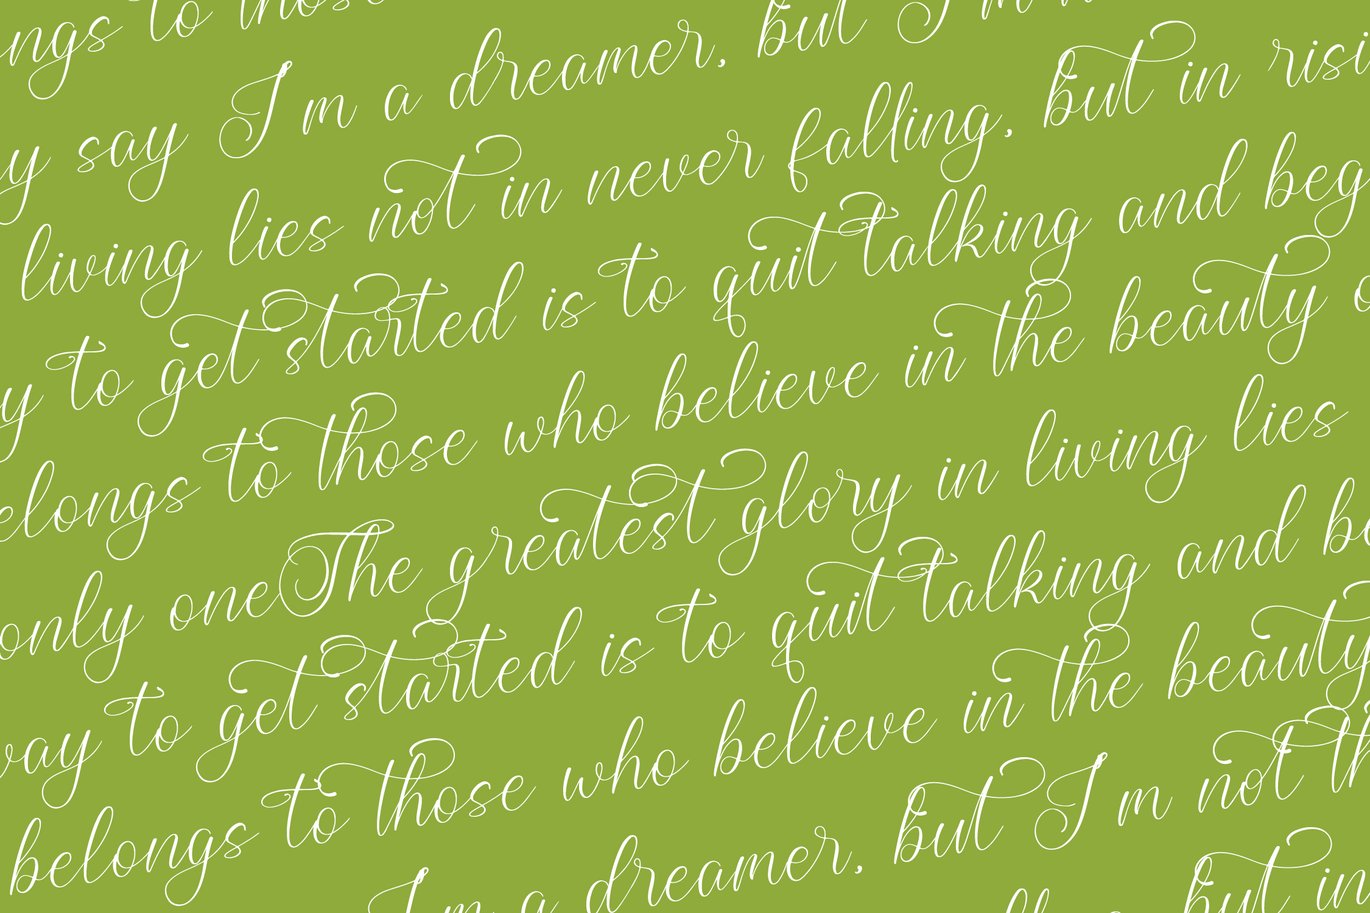 ngs to those
y say I m a dreamer, but I m
living lies not in never falling, but in risi
y to get started is to quit talking and beg
elongs to those who believe in the beauty o
only oneThe greatest glory in living lies
way to get started is to quit talking and be
belongs to those who believe in the beauty
I m a dreamer, but I m not th
but in